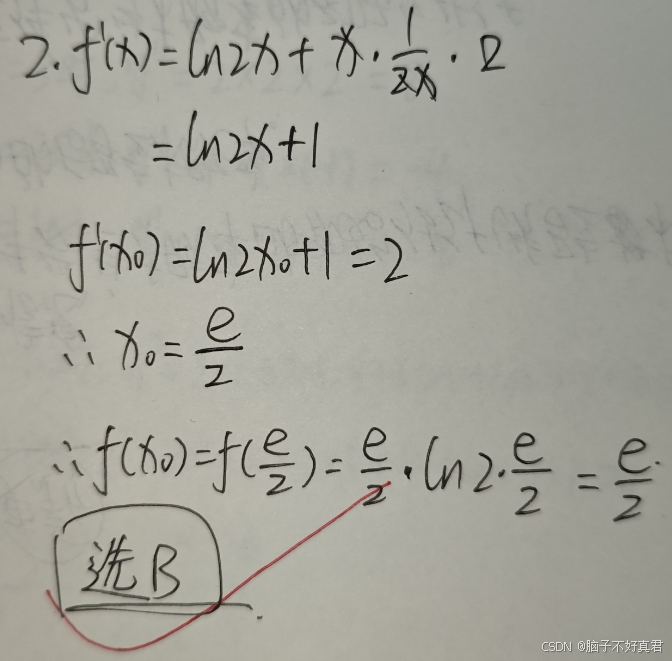 2. f'(x) = ln2x + x · 1/2x · 2
= ln2x + 1
f'(x₀) = ln2x₀ + 1 = 2
∴ x₀ = e/2
∴ f(x₀) = f(e/2) = e/2 · ln2 · e/2 = e/2.
选B.
CSDN @脑子不好真君